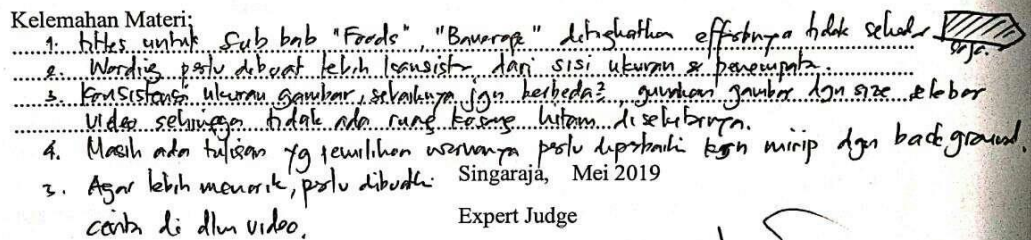 Kelemahan Materi:
1. titles untuk sub bab "Foods", "Baverage" ditingkatkan effectnya tidak sekedar
saja.
2. Wording perlu dibuat lebih konsisten dari sisi ukuran & penempatan.
3. Konsistensi ukuran gambar, sebaiknya jgn berbeda2, gunakan gambar dgn size selebar
video sehingga tidak ada ruang kosong hitam disekitarnya.
4. Masih ada tulisan yg pemilihan warnanya perlu diperbaiki krn mirip dgn background.
5. Agar lebih menarik, perlu dibuatkan
Singaraja, Mei 2019
cerita di dlm video.
Expert Judge